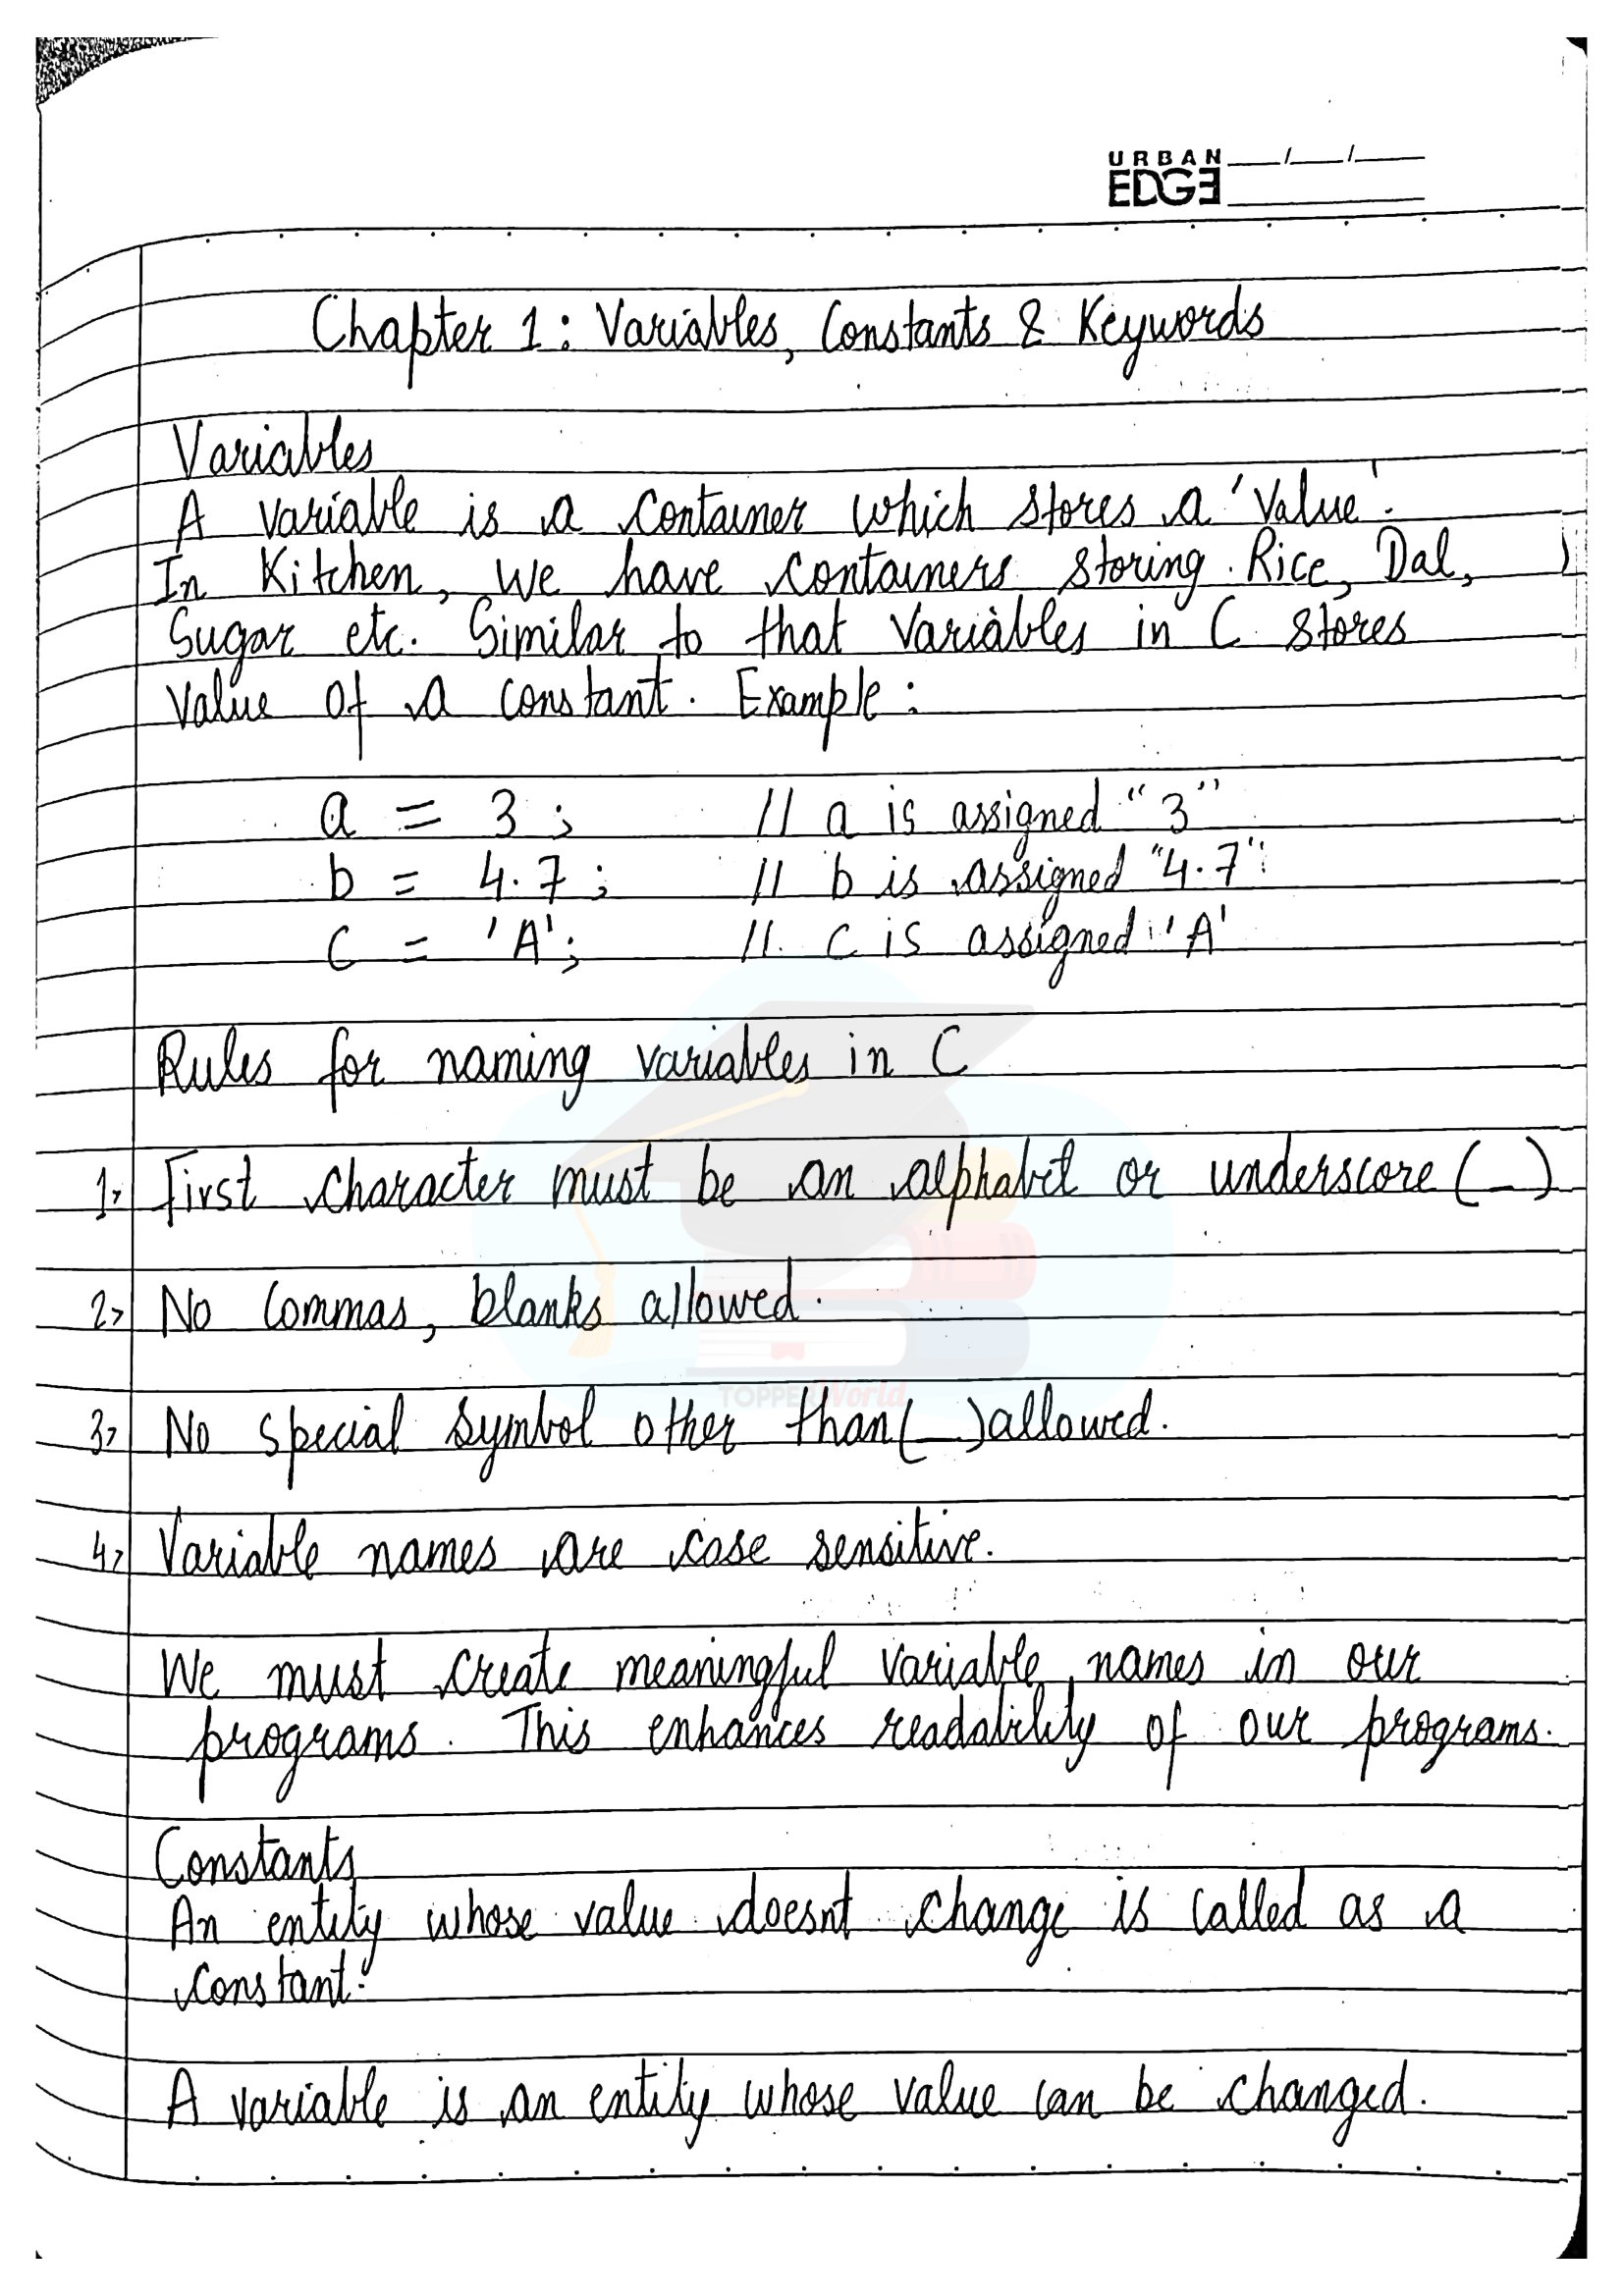 URBAN
EDGE
Chapter 1: Variables, Constants & Keywords
Variables
A variable is a container which stores a 'Value'.
In Kitchen, we have containers storing Rice, Dal,
Sugar etc. Similar to that Variables in C stores
Value of a constant. Example:
a = 3; // a is assigned "3"
b = 4.7; // b is assigned "4.7"
C = 'A'; // C is assigned 'A'
Rules for naming variables in C
1> First character must be an alphabet or underscore (_)
2> No Commas, blanks allowed.
TOPPERWorld
3> No special symbol other than (_) allowed.
4> Variable names are case sensitive.
We must create meaningful variable names in our
programs. This enhances readability of our programs.
Constants
An entity whose value doesnt change is called as a
constant.
A variable is an entity whose value can be changed.